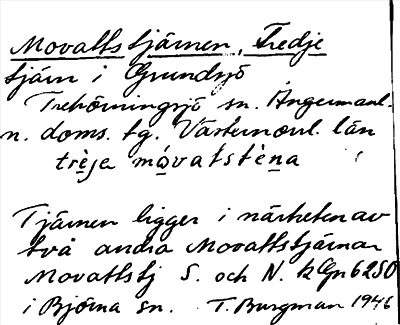 Movattstjärnen, Tredje
tjärn i Grundsjö
Trehörningsjö sn. Ångermanl.
n. doms. tg. Västernorrl. län
trèje måvatstèna
Tjärnen ligger i närheten av
två andra Movattstjärnar
Movattstj S. och N. k Gn 6250
i Björna sn. T. Burgman 1946